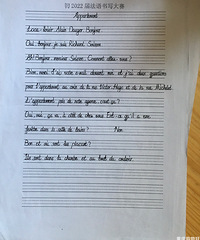 级2022届法语书写大赛
Appartement
Loca-loisir Alain Dauger. Bonjour
Oui, bonjour je suis Richard Swison.
Ah! Bonjour monsieur Swison. Comment allez-vous?
Bien, merci. J'ai votre e-mail devant moi et j'ai deux questions
pour l'appartement au coin de la rue Victor-Hugo et de la rue Michelet.
L'appartement près de votre agence, c'est ça?
Oui, oui, ça va, à côté de chez vous. Est-ce qu'il a une
fenêtre dans la salle de bains? Non.
Bon, et où sont les placards?
Ils sont dans la chambre et au bout du couloir.